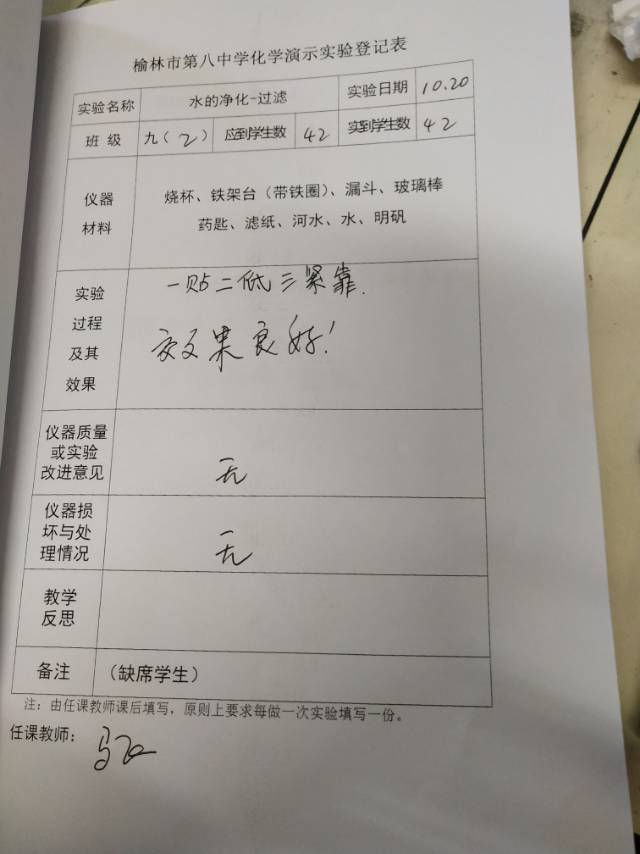 榆林市第八中学化学演示实验登记表
实验名称 水的净化-过滤 实验日期 10.20
班 级 九（2） 应到学生数 42 实到学生数 42
仪器
材料
烧杯、铁架台（带铁圈）、漏斗、玻璃棒
药匙、滤纸、河水、水、明矾
实验
过程
及其
效果
一贴二低三紧靠.
效果良好!
仪器质量
或实验
改进意见
无
仪器损
坏与处
理情况
无
教学
反思
备注 （缺席学生）
注：由任课教师课后填写，原则上要求每做一次实验填写一份。
任课教师：